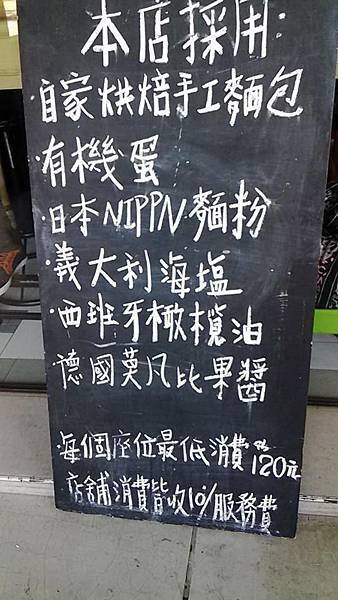 本店採用:
·自家烘焙手工麵包
·有機蛋
·日本NIPPN麵粉
·義大利海塩
·西班牙橄欖油
·德國莫凡比果醬
每個座位最低消費120元
店舖消費皆收10%服務費